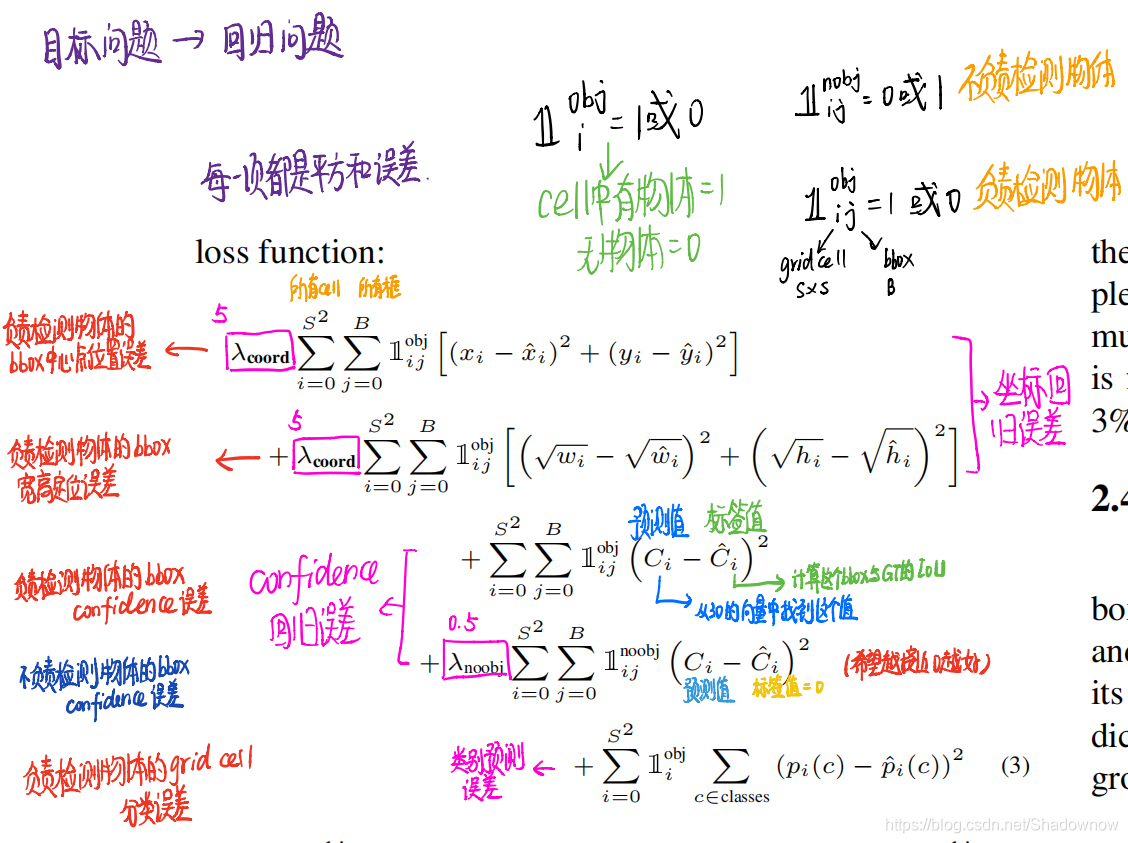 目标问题 → 回归问题
𝟙 obj i = 1或0
𝟙 nobj ij = 0或1 不负责检测物体
每一项都是平方和误差.
cell中有物体=1
无物体=0
𝟙 obj ij = 1 或 0 负责检测物体
grid cell
S×S
bbox
B
loss function:
the
ple
mu
is
3%
所有cell 所有框
5
负责检测物体的
bbox中心点位置误差
λ_coord ∑_{i=0}^{S^2} ∑_{j=0}^{B} 𝟙_{ij}^{obj} [(x_i − x̂_i)^2 + (y_i − ŷ_i)^2]
坐标回
归误差
5
负责检测物体的bbox
宽高定位误差
+ λ_coord ∑_{i=0}^{S^2} ∑_{j=0}^{B} 𝟙_{ij}^{obj} [(√w_i − √ŵ_i)^2 + (√h_i − √ĥ_i)^2]
2.4
预测值 标签值
负责检测物体的bbox
confidence误差
confidence
回归误差
+ ∑_{i=0}^{S^2} ∑_{j=0}^{B} 𝟙_{ij}^{obj} (C_i − Ĉ_i)^2
计算这个bbox与GT的IoU
从30的向量中找到这个值
0.5
不负责检测物体的bbox
confidence误差
+ λ_noobj ∑_{i=0}^{S^2} ∑_{j=0}^{B} 𝟙_{ij}^{noobj} (C_i − Ĉ_i)^2
预测值 标签值=0
bo
and
its
dic
gro
负责检测物体的grid cell
分类误差
类别预测
误差
+ ∑_{i=0}^{S^2} 𝟙_i^{obj} ∑_{c∈classes} (p_i(c) − p̂_i(c))^2 (3)
https://blog.csdn.net/Shadownow